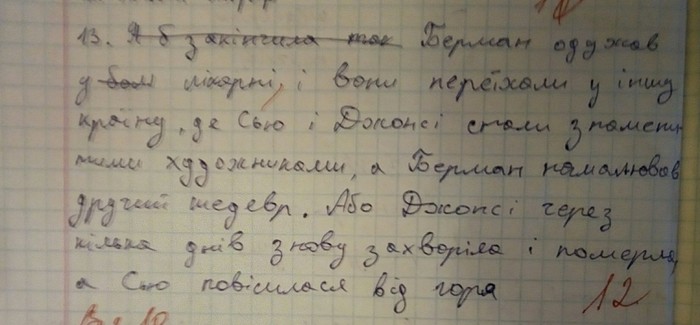 13. Я б закінчила так Берман одужав
у бол лікарні, і вони переїхали у іншу
країну, де Сью і Джонсі стали знамени
тими художниками, а Берман намалював
другий шедевр. Або Джонсі через
кілька днів знову захворіла і померла,
а Сью повісилася від горя
12